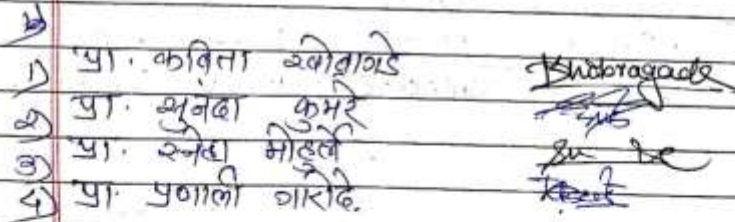 १) प्रा. कविता खोब्रागडे Khobragade
२) प्रा. सुनंदा कुमरे
३) प्रा. स्नेहा मोहुर्ले
४) प्रा. प्रणाली गारोदे.